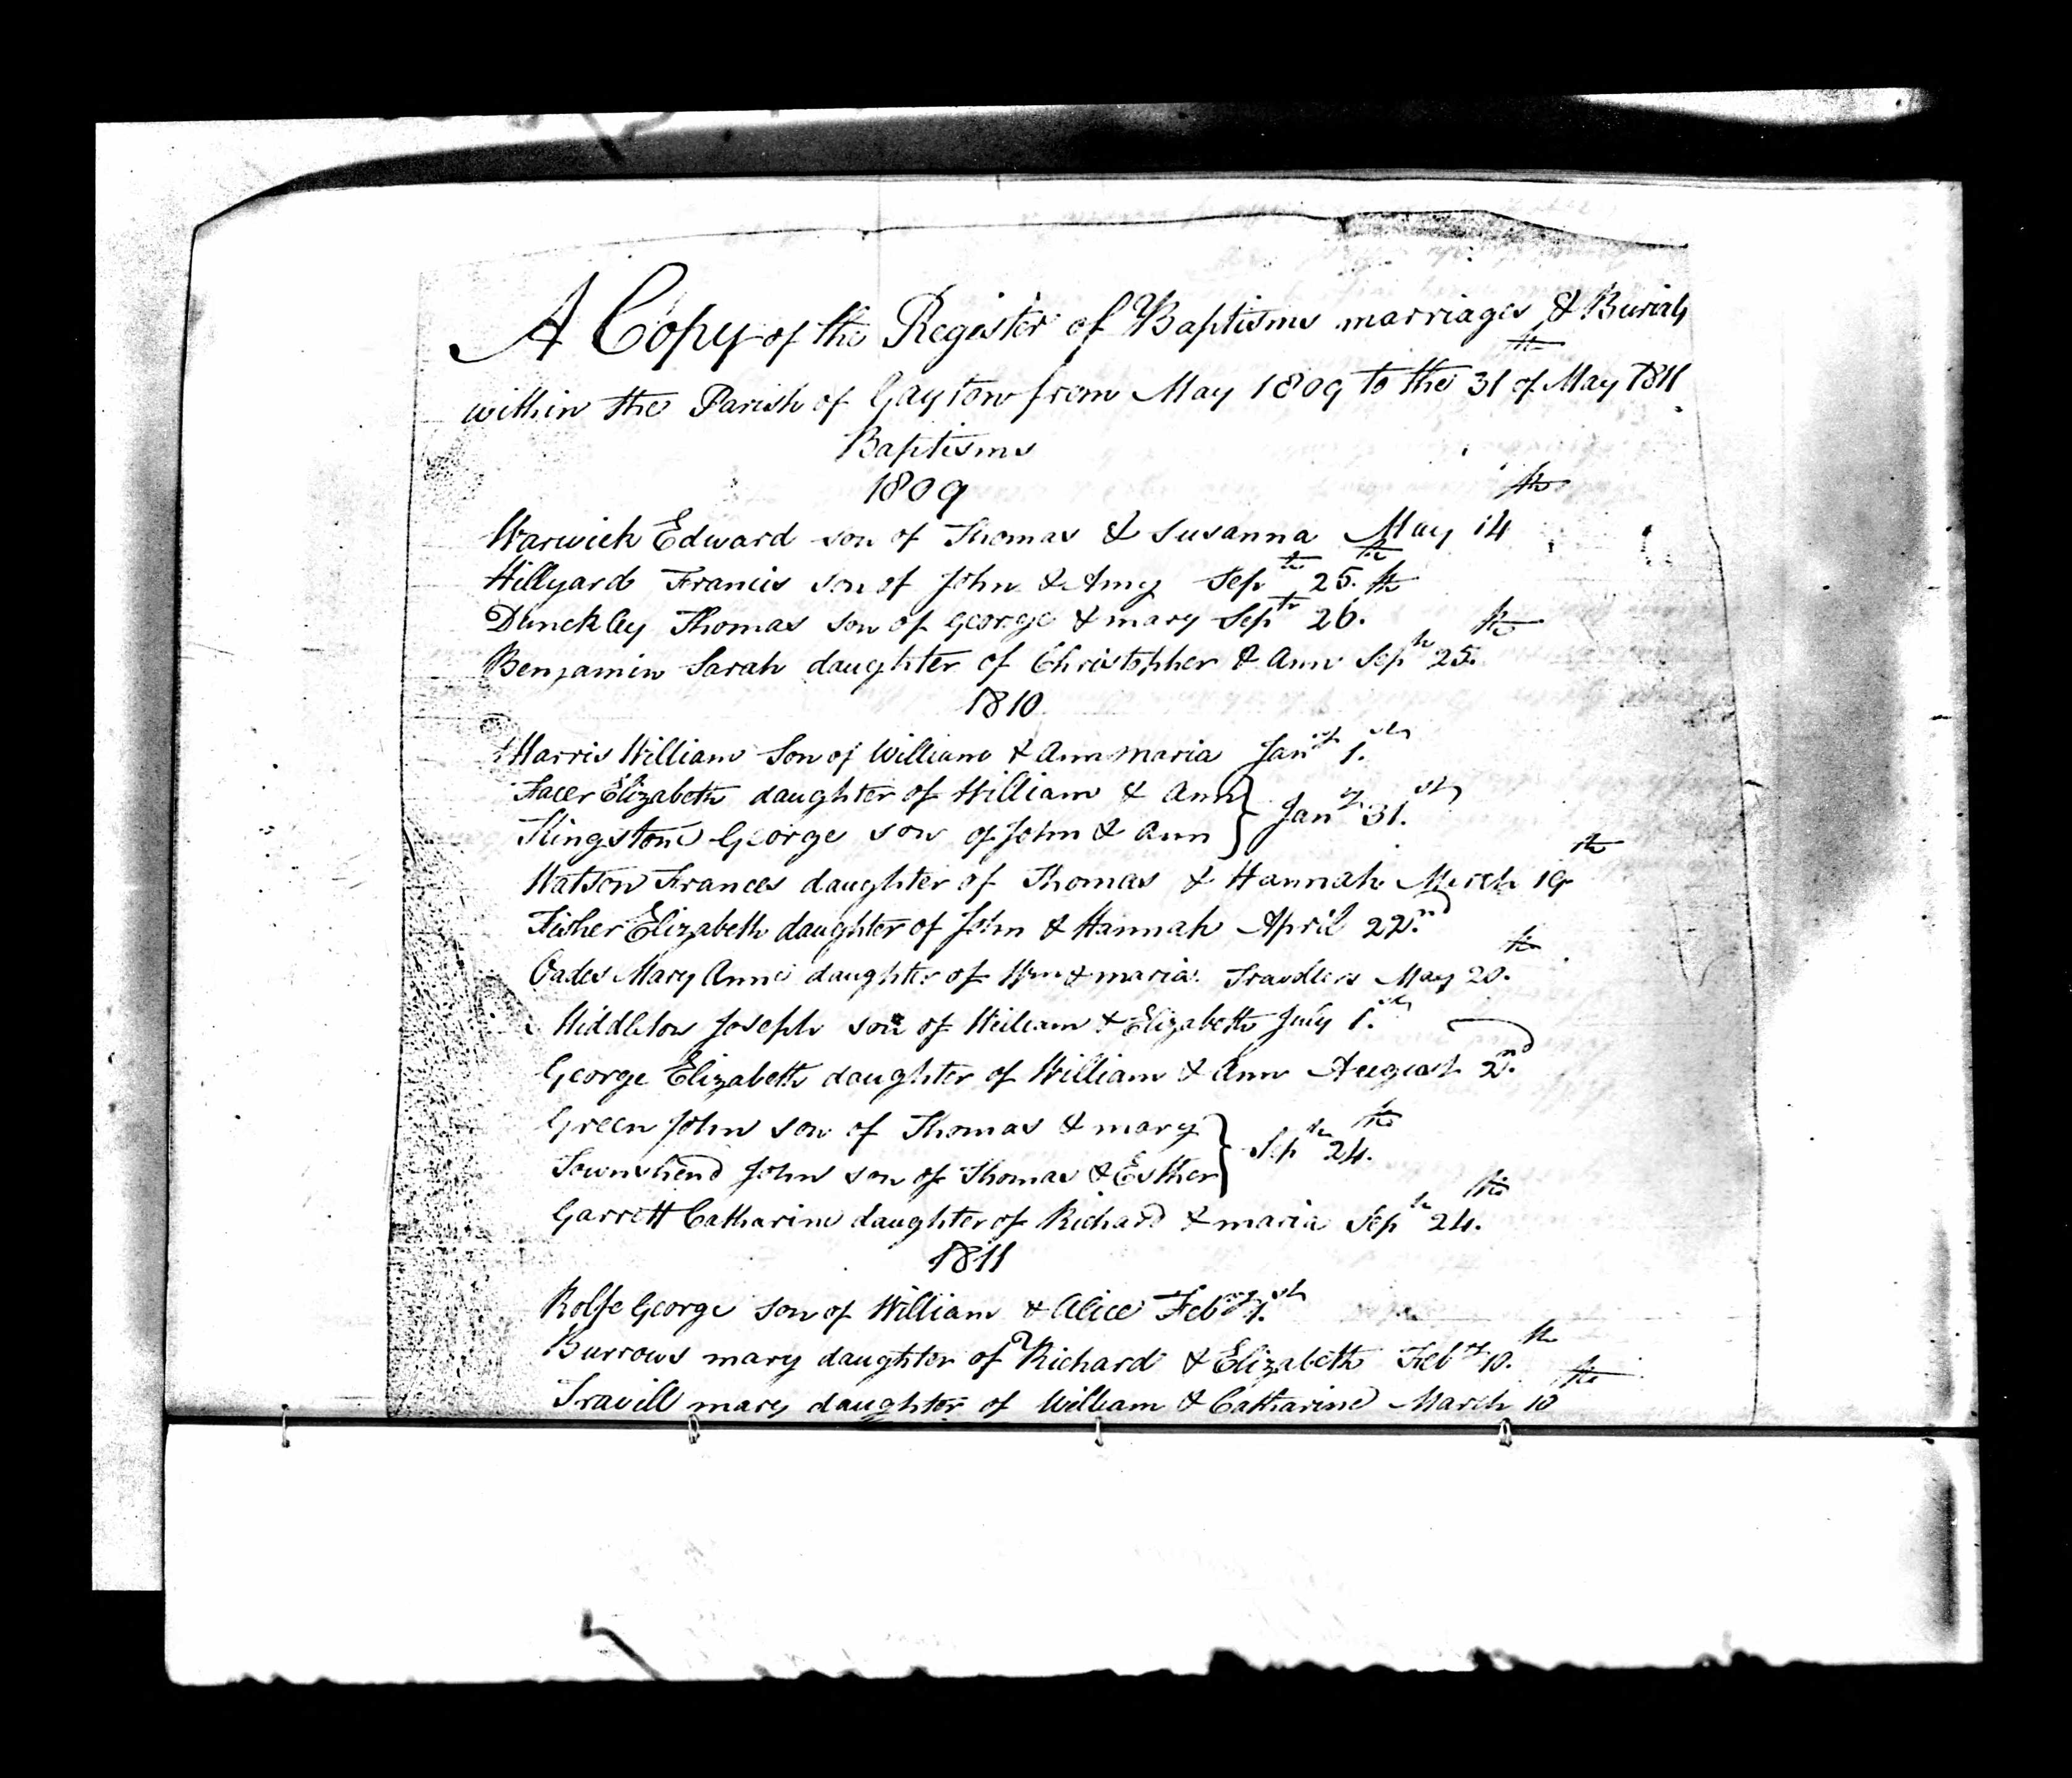 A Copy of the Register of Baptisms marriages & Burials
within the Parish of Gayton from May 1809 to the 31th of May 1811
Baptisms
1809
Warwick Edward son of Thomas & Susanna May 14th
Hillyard Francis son of John & Amy Septr 25.th
Dunckley Thomas son of george & mary Septr 26.th
Benjamin Sarah daughter of Christopher & Ann Sepbr 25.th
1810
Harris William Son of William & Ann maria Jany 1.st
Facer Elizabeth daughter of William & Ann } Jany 31.st
Kingstone George son of John & Ann
Watson Frances daughter of Thomas & Hannah March 19th
Fisher Elizabeth daughter of John & Hannah April 22.nd
Oades Mary Anne daughter of Wm & maria Travellers May 20.th
Middleton Joseph son of William & Elizabeth July 1.st
George Elizabeth daughter of William & Ann August 2.nd
Green John son of Thomas & mary } Sepbr 24.th
Townshend John son of Thomas & Esther
Garrett Catharine daughter of Richard & maria Sepbr 24.th
1811
Rolfe George son of William & Alice Feb 1.st
Burrows mary daughter of Richard & Elizabeth Feby 10.th
Travill mary daughter of William & Catharine March 10th